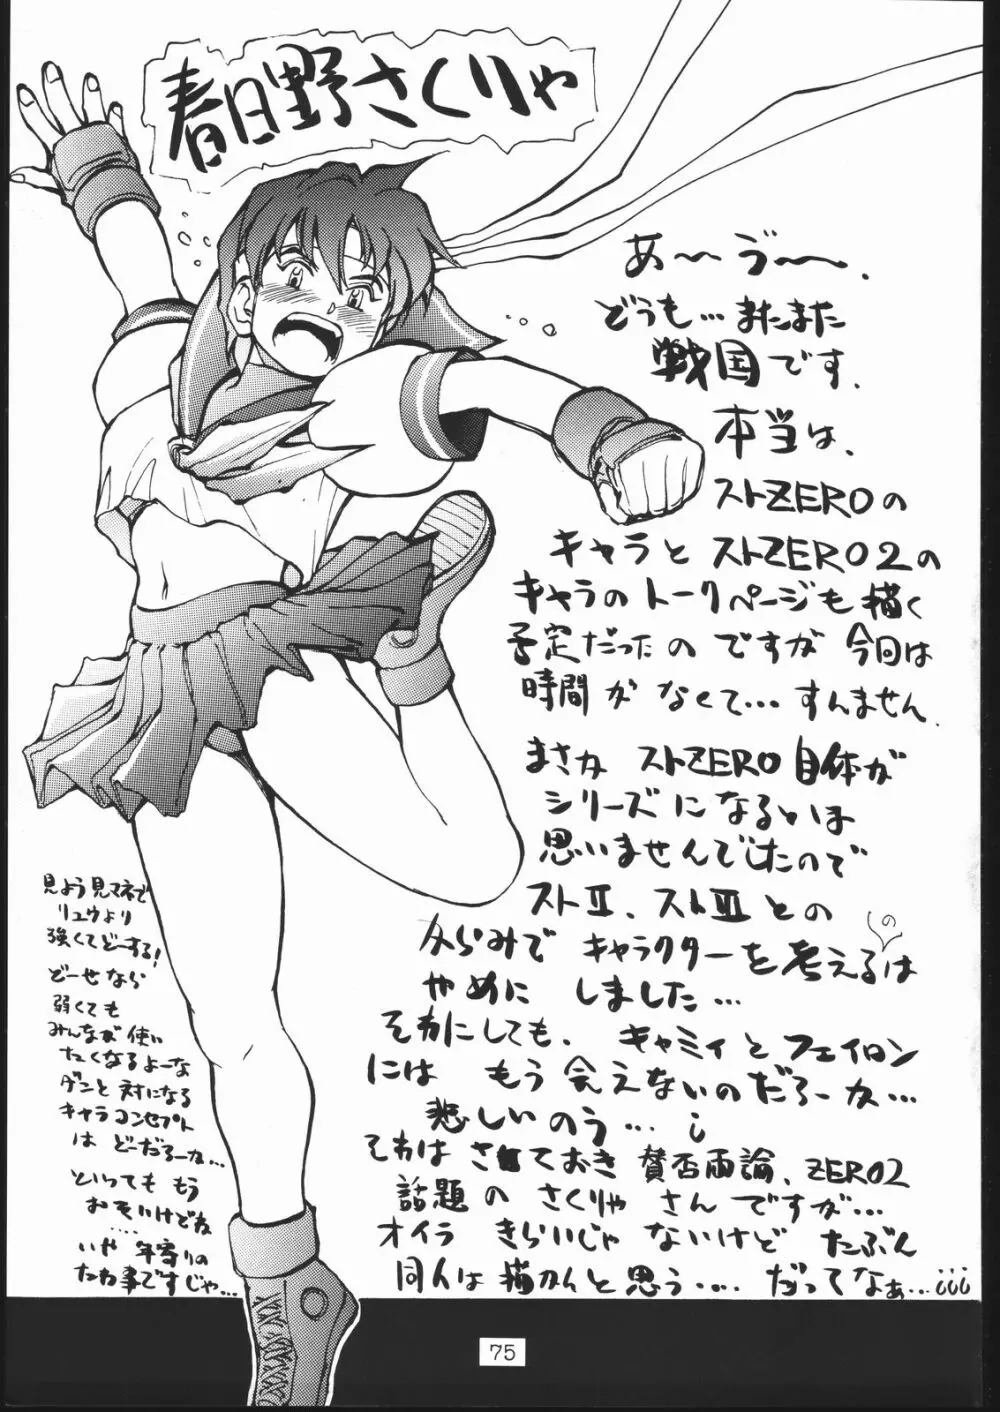 春日野さくりゃ
あ〜ゔ〜、
どうも…またまた
戦国です。
本当は、
ストZEROの
キャラと ストZERO2の
キャラのトークページも描く
予定だったのですが今回は
時間がなくて…すんません。
まさか ストZERO自体が
シリーズになるとは
思いませんでしたので
ストⅡ、ストⅢとの
からみでキャラクターを考えるのは
やめにしました…
それにしても、キャミィとフェイロン
には もう会えないのだろーか…
悲しいのう…
それはさておき 賛否両論、ZERO2
話題の さくりゃ さんですが…
オイラ きらいじゃないけど たぶん
同人は描かんと思う…だってなぁ…
見よう見マネで
リュウより
強くてどーする!
どーせなら
弱くても
みんなが使い
たくなるよーな
ダンと対になる
キャラコンセプト
は どーだろーか…
といっても もう
おそいけどね
……
いや 年寄りの
たわ事ですじゃ…
75